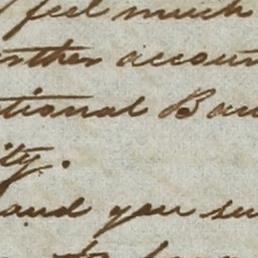 feel much
other accoun
tional Ban
ity.
and you su